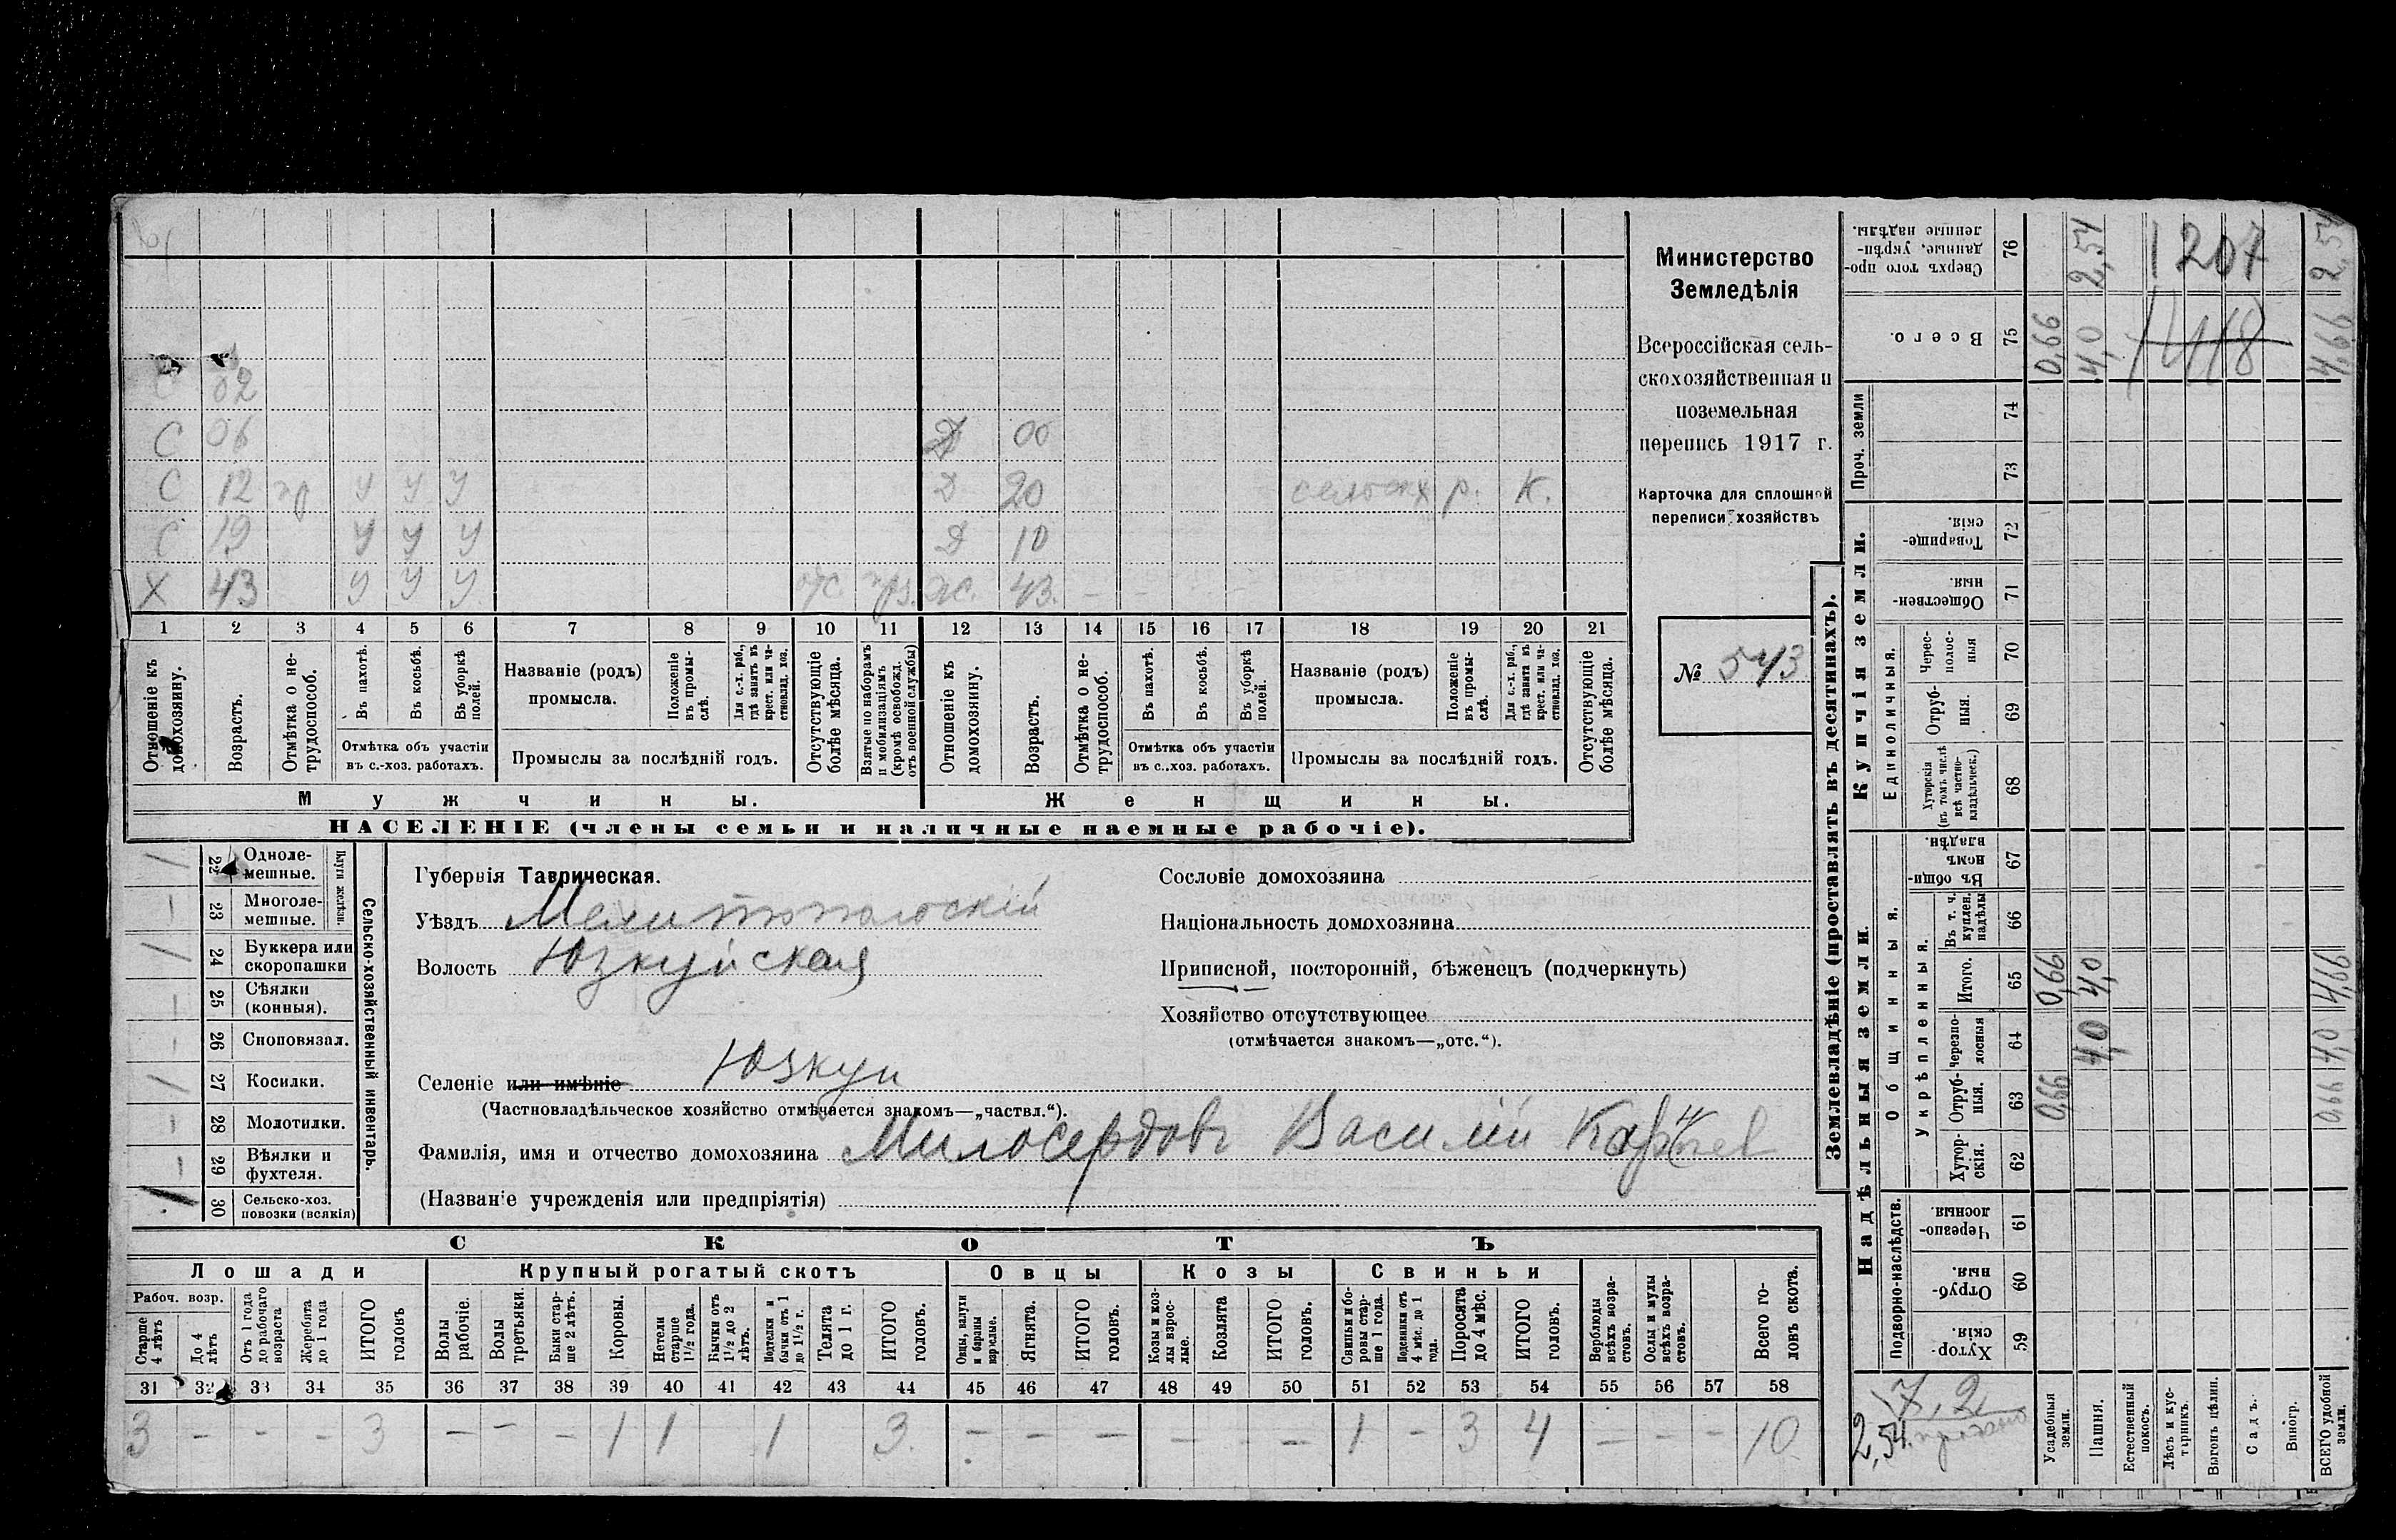 С 02
С 06 Д 00
С 12 У У У Д 20 р. К.
С 19 У У У Д 10
Х 43 У У У отс. ж. 43.
1 2 3 4 5 6 7 8 9 10 11 12 13 14 15 16 17 18 19 20 21
Отношеніе къ домохозяину.
Возрастъ.
Отмѣтка о не-трудоспособ.
Въ пахотѣ.
Въ косьбѣ.
Въ уборкѣ полей.
Отмѣтка объ участіи
въ с.-хоз. работахъ.
Названіе (родъ)
промысла.
Положеніе въ промы-слѣ.
Для с.-х. раб., гдѣ занятъ въ крест. или ча-стновлад. хоз.
Промыслы за послѣдній годъ.
Отсутствующіе болѣе мѣсяца.
Взятые по наборамъ и мобилизаціямъ (кромѣ освобожд. отъ военной службы)
Отношеніе къ домохозяину.
Возрастъ.
Отмѣтка о не-трудоспособ.
Въ пахотѣ.
Въ косьбѣ.
Въ уборкѣ полей.
Отмѣтка объ участіи
въ с..хоз. работахъ.
Названіе (родъ)
промысла.
Положеніе въ промы-слѣ.
Для с.-х. раб., гдѣ занята въ крест. или ча-стновлад. хоз.
Промыслы за послѣдній годъ.
Отсутствующіе болѣе мѣсяца.
Мужчины. Женщины.
НАСЕЛЕНІЕ (члены семьи и наличные наемные рабочіе).
Министерство
Земледѣлія
Всероссійская сель-
скохозяйственная и
поземельная
перепись 1917 г.
Карточка для сплошной
переписи хозяйствъ
№ 543
Сельско-хозяйственный инвентарь.
Плуги желѣзн.
/ 22 Одноле-мешные.
— 23 Многоле-мешные.
/ 24 Буккера или скоропашки
— 25 Сѣялки (конныя).
— 26 Сноповязал.
/ 27 Косилки.
— 28 Молотилки.
— 29 Вѣялки и фухтеля.
/ 30 Сельско-хоз. повозки (всякія)
Губернія Таврическая.
Уѣздъ Мелитопольскій
Волость Юзкуйская
Селеніе или имѣніе Юзкуи
(Частновладѣльческое хозяйство отмѣчается знакомъ—„частвл.“).
Фамилія, имя и отчество домохозяина Милосердовъ Василій
(Названіе учрежденія или предпріятія)
Сословіе домохозяина
Національность домохозяина
Приписной, посторонній, бѣженецъ (подчеркнуть)
Хозяйство отсутствующее
(отмѣчается знакомъ—„отс.“).
СКОТЪ
Лошади Крупный рогатый скотъ Овцы Козы Свиньи
Рабоч. возр.
Старше 4 лѣтъ
До 4 лѣтъ
Отъ 1 года до рабочаго возраста
Жеребята до 1 года
ИТОГО головъ
Волы рабочіе.
Волы третьяки.
Быки стар-ше 2 лѣтъ.
Коровы.
Нетели старше 1½ года.
Бычки отъ 1½ до 2 лѣтъ.
Подтелки и бычки отъ 1 до 1½ г.
Телята до 1 г.
ИТОГО головъ.
Овцы, валухи и бараны взрослые.
Ягнята.
ИТОГО головъ.
Козы и коз-лы взрос-лые.
Козлята
ИТОГО головъ.
Свиньи и бо-ровы стар-ше 1 года.
Подсвинки отъ 4 мѣс. до 1 года.
Поросята до 4 мѣс.
ИТОГО головъ.
Верблюды всѣхъ возра-стовъ.
Ослы и мулы всѣхъ возра-стовъ.
Всего го-ловъ скота.
31 32 33 34 35 36 37 38 39 40 41 42 43 44 45 46 47 48 49 50 51 52 53 54 55 56 57 58
3 — — — 3 — — — 1 1 1 3 — — — — — — 1 — 3 4 — — — 10
Землевладѣніе (проставлять въ десятинахъ).
Надѣльныя земли. Купчія земли.
Подворно-наслѣдств.
Общинныя.
Укрѣпленныя.
Единоличныя.
Проч. земли
Хутор-скія. 59
Отруб-ныя. 60
Черезпо-лосныя 61
Хутор-скія. 62
Отруб-ныя. 63
Черезпо-лосныя 64
Итого. 65
Въ т. ч. куплен. надѣлы 66
Въ общи-номъ владѣн. 67
Хуторскія (въ томъ числѣ всѣ частно-владѣльческ.) 68
Отруб-ныя. 69
Черес-полос-ныя 70
Обществен-ныя. 71
Товарище-скія. 72
73
74
Всего. 75
Сверхъ того про-данные, укрѣп-ленные надѣлы. 76
Усадебныя земли. 0,66 0,66 0,66
Пашня. 4,0 4,0 4,0 2,54
Естественный покосъ.
Лѣсъ и кус-тарникъ.
Выгонъ цѣлин.
Садъ.
Виногр.
ВСЕГО удобной земли. 0,66 4,0 4,66 4,66 2,54
1207
1418
7,2
2,54